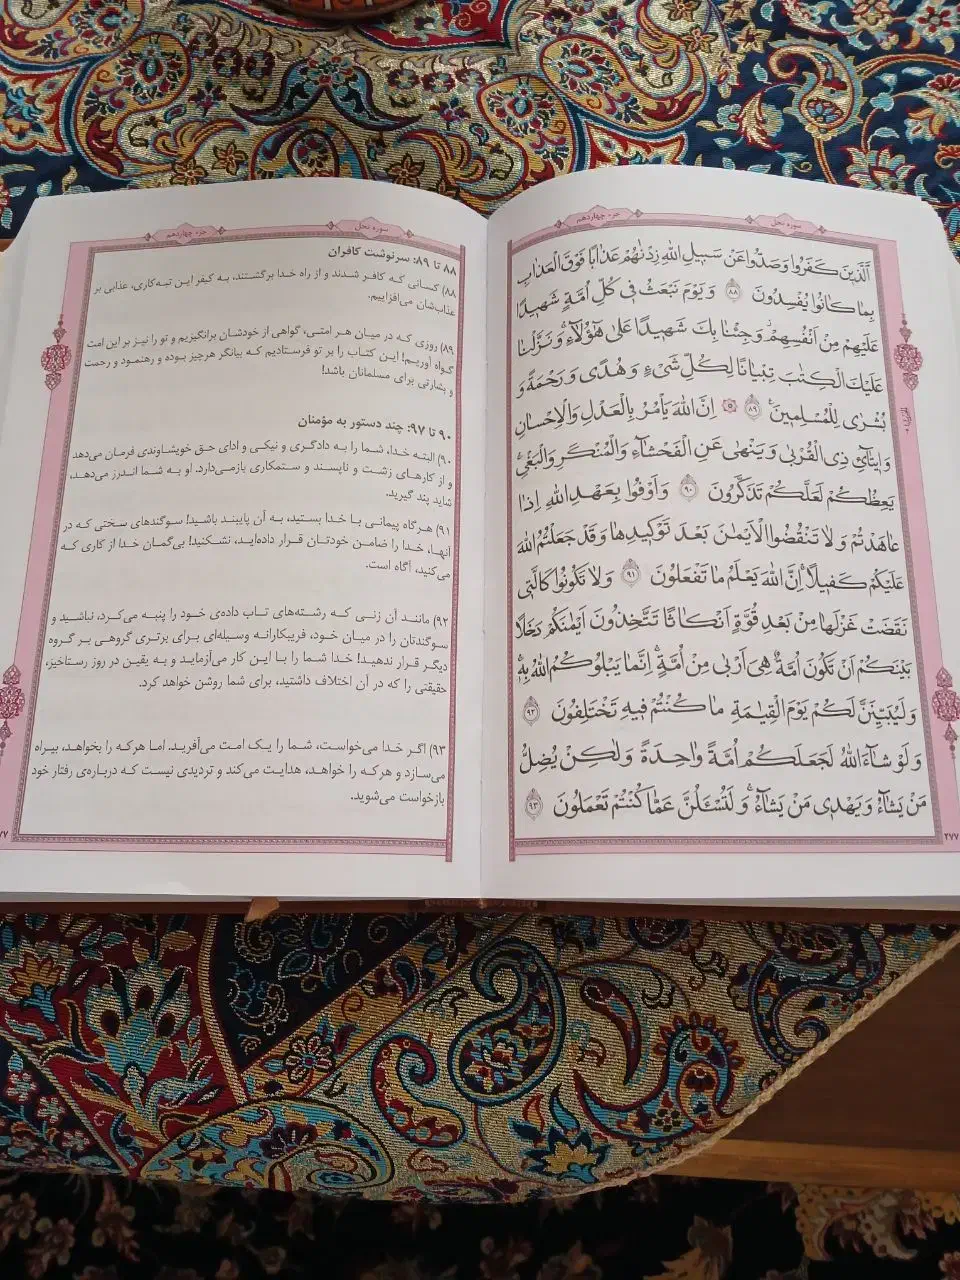 سوره نحل
جزء چهاردهم
ٱلَّذِينَ كَفَرُوا وَصَدُّوا عَنْ سَبِيلِ اللّٰهِ زِدْنَاهُمْ عَذَابًا فَوْقَ الْعَذَابِ
بِمَا كَانُوا يُفْسِدُونَ ﴿٨٨﴾ وَيَوْمَ نَبْعَثُ فِي كُلِّ أُمَّةٍ شَهِيدًا
عَلَيْهِمْ مِنْ أَنْفُسِهِمْ وَجِئْنَا بِكَ شَهِيدًا عَلَىٰ هٰؤُلَاءِ وَنَزَّلْنَا
عَلَيْكَ الْكِتٰبَ تِبْيَانًا لِكُلِّ شَيْءٍ وَهُدًى وَرَحْمَةً وَ
بُشْرَىٰ لِلْمُسْلِمِينَ ﴿٨٩﴾ إِنَّ اللّٰهَ يَأْمُرُ بِالْعَدْلِ وَالْإِحْسَانِ
وَإِيتَآئِ ذِي الْقُرْبَىٰ وَيَنْهَىٰ عَنِ الْفَحْشَآءِ وَالْمُنْكَرِ وَالْبَغْيِ
يَعِظُكُمْ لَعَلَّكُمْ تَذَكَّرُونَ ﴿٩٠﴾ وَأَوْفُوا بِعَهْدِ اللّٰهِ إِذَا
عَاهَدْتُمْ وَلَا تَنْقُضُوا الْأَيْمٰنَ بَعْدَ تَوْكِيدِهَا وَقَدْ جَعَلْتُمُ اللّٰهَ
عَلَيْكُمْ كَفِيلًا إِنَّ اللّٰهَ يَعْلَمُ مَا تَفْعَلُونَ ﴿٩١﴾ وَلَا تَكُونُوا كَالَّتِي
نَقَضَتْ غَزْلَهَا مِنْ بَعْدِ قُوَّةٍ أَنْكَاثًا تَتَّخِذُونَ أَيْمٰنَكُمْ دَخَلًا
بَيْنَكُمْ أَنْ تَكُونَ أُمَّةٌ هِيَ أَرْبَىٰ مِنْ أُمَّةٍ إِنَّمَا يَبْلُوكُمُ اللّٰهُ بِهِ
وَلَيُبَيِّنَنَّ لَكُمْ يَوْمَ الْقِيٰمَةِ مَا كُنْتُمْ فِيهِ تَخْتَلِفُونَ ﴿٩٢﴾
وَلَوْ شَآءَ اللّٰهُ لَجَعَلَكُمْ أُمَّةً وَاحِدَةً وَلٰكِنْ يُضِلُّ
مَنْ يَشَآءُ وَيَهْدِي مَنْ يَشَآءُ وَلَتُسْـَٔلُنَّ عَمَّا كُنْتُمْ تَعْمَلُونَ ﴿٩٣﴾
٢٧٧
سوره نحل
جزء چهاردهم
۸۸ تا ۸۹: سرنوشت کافران
۸۸) کسانی که کافر شدند و از راه خدا برگشتند، به کیفر این تبه‌کاری، عذابی بر
عذاب‌شان می‌افزاییم.
۸۹) روزی که در میان هر امتی، گواهی از خودشان برانگیزیم و تو را نیز بر این امت
گواه آوریم! این کتاب را بر تو فرستادیم که بیانگر هرچیز بوده و رهنمود و رحمت
و بشارتی برای مسلمانان باشد!
۹۰ تا ۹۷: چند دستور به مؤمنان
۹۰) البته خدا، شما را به دادگری و نیکی و ادای حق خویشاوندی فرمان می‌دهد
و از کارهای زشت و ناپسند و ستمکاری بازمی‌دارد. او به شما اندرز می‌دهد،
شاید پند گیرید.
۹۱) هرگاه پیمانی با خدا بستید، به آن پایبند باشید! سوگندهای سختی که در
آنها، خدا را ضامن خودتان قرار داده‌اید، نشکنید! بی‌گمان خدا از کاری که
می‌کنید، آگاه است.
۹۲) مانند آن زنی که رشته‌های تاب داده‌ی خود را پنبه می‌کرد، نباشید و
سوگندتان را در میان خود، فریبکارانه وسیله‌ای برای برتری گروهی بر گروه
دیگر قرار ندهید! خدا شما را با این کار می‌آزماید و به یقین در روز رستاخیز،
حقیقتی را که در آن اختلاف داشتید، برای شما روشن خواهد کرد.
۹۳) اگر خدا می‌خواست، شما را یک امت می‌آفرید. اما هرکه را بخواهد، بیراه
می‌سازد و هرکه را خواهد، هدایت می‌کند و تردیدی نیست که درباره‌ی رفتار خود
بازخواست می‌شوید.